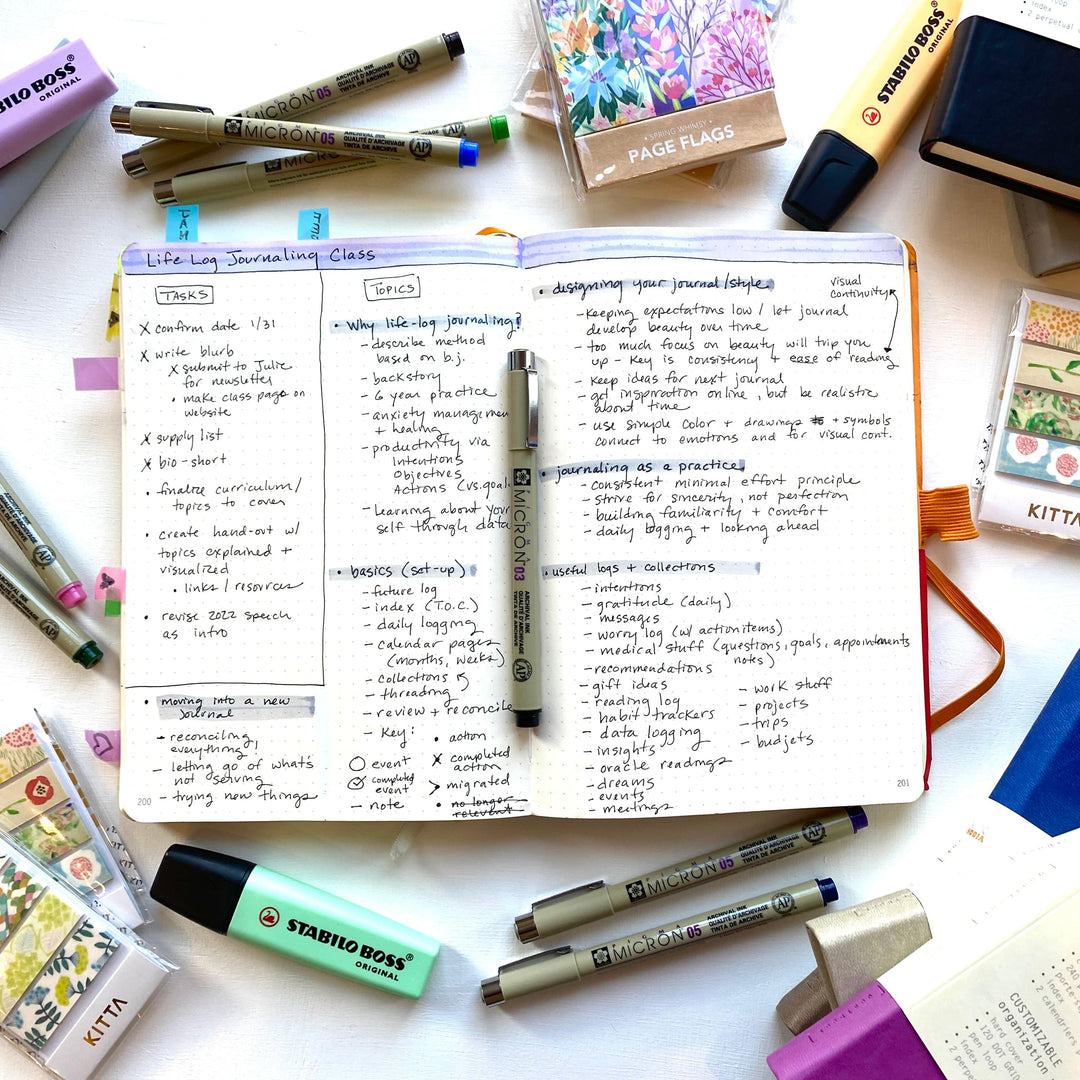 STABILO BOSS
ORIGINAL
MICRON 05
ARCHIVAL INK
QUALITÉ D'ARCHIVAGE
TINTA DE ARCHIVO
AP
MICRON 05
ARCHIVAL INK
QUALITÉ D'ARCHIVAGE
TINTA DE ARCHIVE
AP
MICRON
SPRING WHIMSY
PAGE FLAGS
STABILO BOSS
ORIGINAL
index
2 perpetual
Life Log Journaling Class
TASKS
X confirm date 1/31
X write blurb
X submit to Julie
for newsletter
• make class page on
website
X supply list
X bio - short
• finalize curriculum /
topics to cover
• create hand-out w/
topics explained +
visualized
• links / resources
• revise 2022 speech
as intro
• moving into a new
journal
- reconciling
everything!
- letting go of what's
not serving
- trying new things
200
TOPICS
• Why life-log journaling?
- describe method
based on b.j.
- backstory
- 6 year practice
- anxiety managemen
+ healing
- productivity via
Intentions
Objectives
Actions (vs. goal
- learning about your
self through data
• basics (set-up)
- future log
- index (T.O.C.)
- daily logging
- calendar pages
(months, weeks)
- collections
- threading
- review + reconcile
- Key:
• action
○ event
X completed
action
completed
event
> migrated
- note
• no longer
relevent
• designing your journal/style
visual
continuity
- keeping expectations low / let journal
develop beauty over time
- too much focus on beauty will trip you
up - key is consistency + ease of reading
- keep ideas for next journal
- get inspiration online, but be realistic
about time
- use simple color + drawings + symbols
connect to emotions and for visual cont.
• journaling as a practice
- consistent minimal effort principle
- strive for sincerity, not perfection
- building familiarity + comfort
- daily logging + looking ahead
• useful logs + collections
- intentions
- gratitude (daily)
- messages
- worry log (w/ action items)
- medical stuff (questions, goals, appointments
notes)
- recommendations
- gift ideas
- reading log
- habit trackers
- data logging
- insights
- oracle readings
- dreams
- events
- meetings
- work stuff
- projects
- trips
- budjets
201
MICRON 03
ARCHIVAL INK
QUALITÉ D'ARCHIVAGE
TINTA DE ARCHIVE
AP
KITTA
KITTA
STABILO BOSS
ORIGINAL
MICRON 05
ARCHIVAL INK
QUALITÉ D'ARCHIVAGE
TINTA DE ARCHIVE
AP
MICRON 05
ARCHIVAL INK
QUALITÉ D'ARCHIVAGE
TINTA DE ARCHIVE
AP
KITTA
CUSTOMIZABLE
organization
• hard cover
• 120 DOT GRID
• pen loop
• index
• 2 perpe
240
porte-s
index
2 calendriers